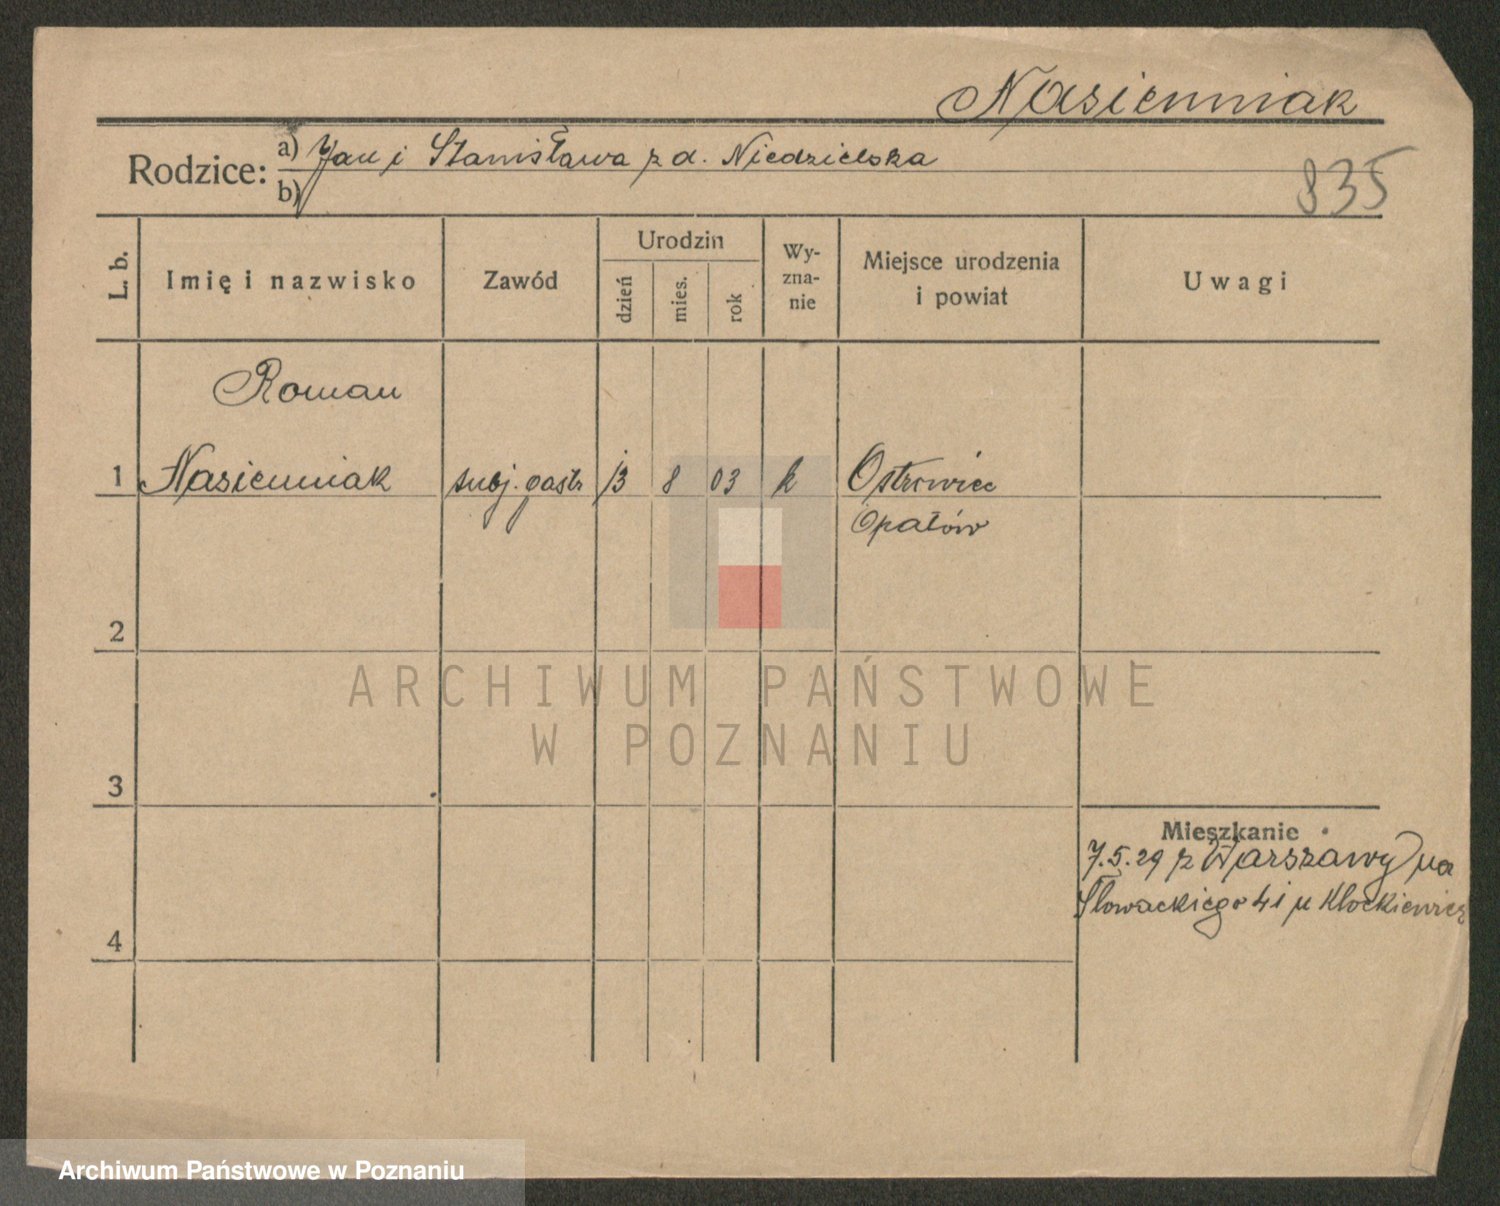 Nasienniak
Rodzice: a) Jan i Stanisława z d. Niedzielska
b)
835
L. b. Imię i nazwisko Zawód Urodzin dzień mies. rok Wyznanie Miejsce urodzenia i powiat Uwagi
Roman
1 Nasienniak subj. gastr 13 8 03 k Ostrowiec
Opatów
2
3
Mieszkanie
7.5.29 z Warszawy na
Słowackiego 41 u Klockiewicz
4
ARCHIWUM PAŃSTWOWE
W POZNANIU
Archiwum Państwowe w Poznaniu